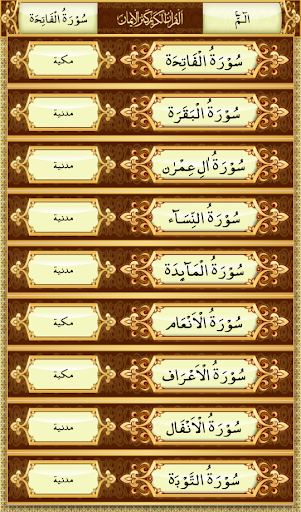 الٓمّٓ القرآن الكريم كنز الإيمان سُوْرَةُ الْفَاتِحَة
سُوْرَةُ الْفَاتِحَة مكية
سُوْرَةُ الْبَقَرَة مدنية
سُوْرَةُ اٰلِ عِمْرٰن مدنية
سُوْرَةُ النِّسَآء مدنية
سُوْرَةُ الْمَآىِٕدَة مدنية
سُوْرَةُ الْاَنْعَام مكية
سُوْرَةُ الْاَعْرَاف مكية
سُوْرَةُ الْاَنْفَال مدنية
سُوْرَةُ التَّوْبَة مدنية